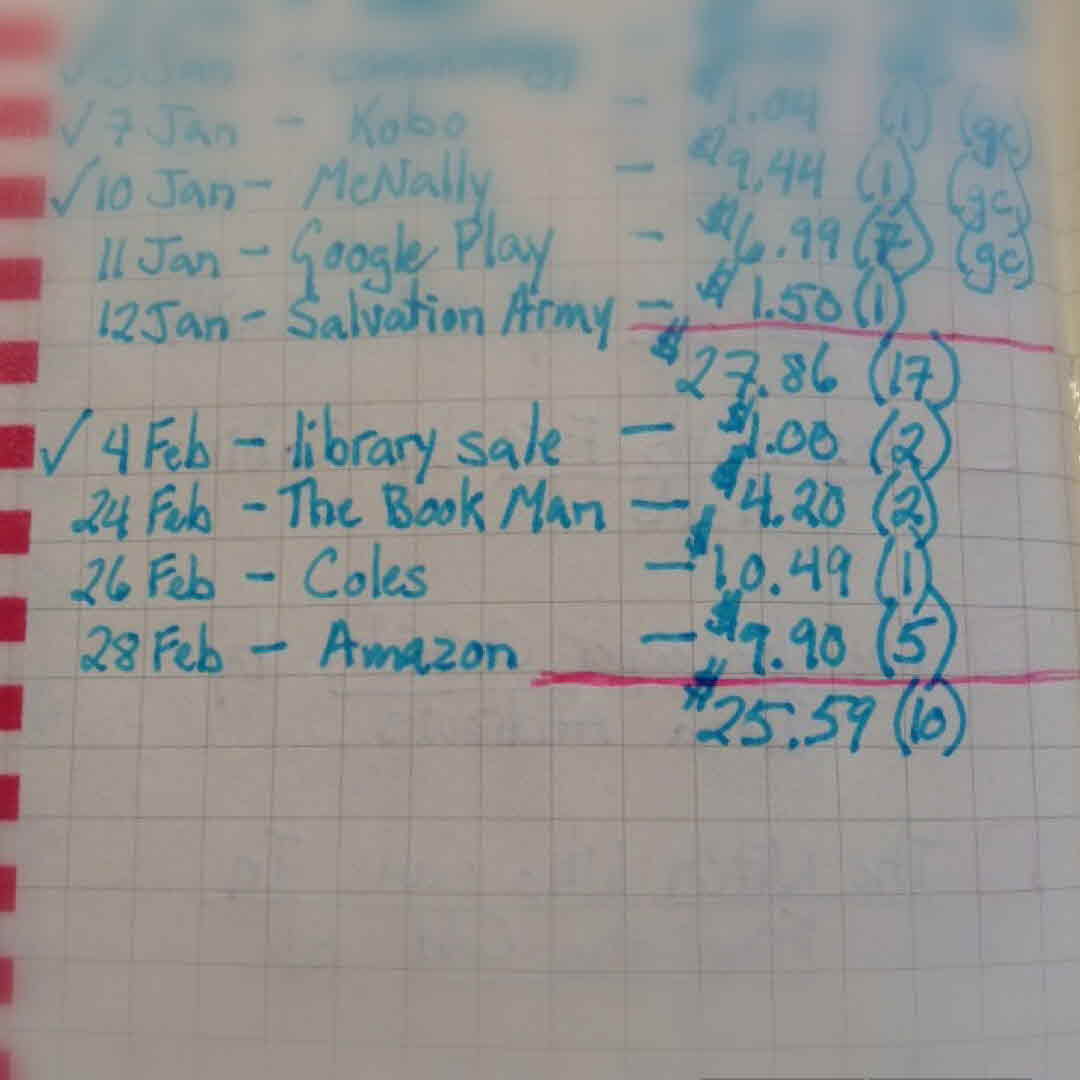 ✓ 7 Jan - Kobo - $1.04 (1) (gc)
✓ 10 Jan - McNally - $9.44 (1) (gc)
11 Jan - Google Play - $6.99 (7) (gc)
12 Jan - Salvation Army - $1.50 (1)
$27.86 (17)
✓ 4 Feb - library sale - $1.00 (2)
24 Feb - The Book Man - $4.20 (2)
26 Feb - Coles - $10.49 (1)
28 Feb - Amazon - $9.90 (5)
$25.59 (10)